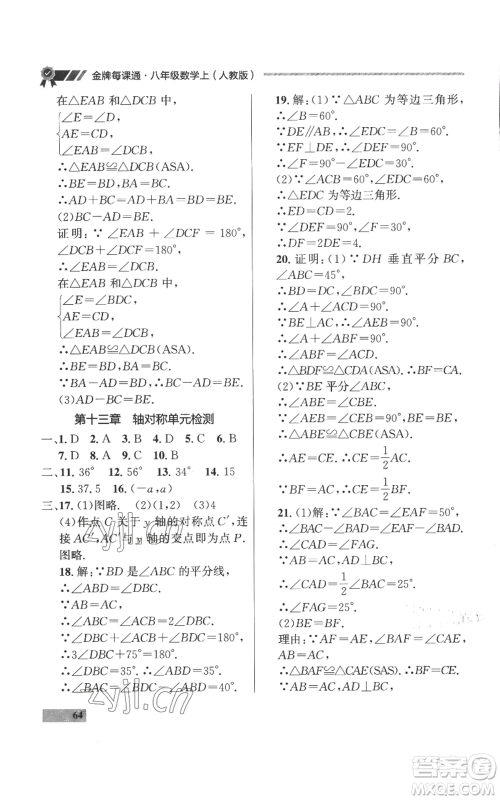 金牌每课通·八年级数学上(人教版)
在△EAB 和△DCB 中，
∠E=∠D，
AE=CD，
∠EAB=∠DCB，
∴△EAB≌△DCB(ASA).
∴BE=BD，BA=BC.
∴AD+BC=AD+AB=BD=BE.
(2)BA-AD=BE.
证明：∵∠EAB+∠DCF=180°，
∠DCB+∠DCF=180°，
∴∠EAB=∠DCB.
∠E=∠BDC，
AE=CD，
∠EAB=∠DCB，
∴△EAB≌△DCB(ASA).
∴BD=BE，BC=BA.
∵BA-AD=BD，
∴BA-AD=BE.
(3)AD-BA=BE.
第十三章 轴对称单元检测
一、1. D 2. A 3. C 4. D 5. C 6. B
7. D 8. A 9. D 10. B
二、11. 36° 12. 56° 13. 34° 14. 15
15. 37.5 16. (-a，a)
三、17. (1)图略. (2)(1，2) (3)4
(4)作点 C 关于 y 轴的对称点 C′，连
接 AC′，AC′与 y 轴的交点即为点 P.
图略.
18. 解：∵BD 是∠ABC 的平分线，
∴∠ABD=∠DBC.
∵AB=AC，
∴∠ABC=∠C=2∠DBC.
∵∠DBC+∠C+∠BDC=180°，
∴3∠DBC+75°=180°.
∴∠DBC=35°.
∴∠BAC=∠BDC-∠ABD=40°.
64
19. 解：(1)∵△ABC 为等边三角形，
∴∠B=60°.
∵DE∥AB，∴∠EDC=∠B=60°.
∵EF⊥DE，∴∠DEF=90°.
∴∠F=90°-∠EDC=30°.
(2)∵∠C=60°，∠EDC=60°，
∴△EDC 为等边三角形.
∴ED=CD=2.
∵∠DEF=90°，∠F=30°，
∴DF=2DE=4.
20. 证明：(1)∵DH 垂直平分 BC，
∠ABC=45°，
∴BD=DC，∠BDC=90°.
∴∠A+∠ACD=90°.
∵BE⊥AC，∴∠AEB=90°.
∴∠A+∠ABF=90°.
∴∠ABF=∠ACD.
∴△BDF≌△CDA(ASA).
(2)∵BE 平分∠ABC，
∴∠ABE=∠CBE.
∵BE⊥AC，
∴∠AEB=∠CEB.
∴△ABE≌△CBE(ASA).
∴AE=CE.
∴AE=CE=1/2AC.
∵BF=AC，∴CE=1/2BF.
21. (1)解：∵∠BAE=50°，
∴∠CAE=∠BAE=50°.
∴∠CAB=100°.
∵AB=AC，AD⊥BC，
∴∠CAD=1/2∠CAB=50°.
∴∠FAG=∠CAD=50°.
∴∠FAG=25°.
(2)BE=BF.
理由：∵AF=AC，AC=AB，
∴AB=AF.
∴△CAE≌△BAE(SAS).